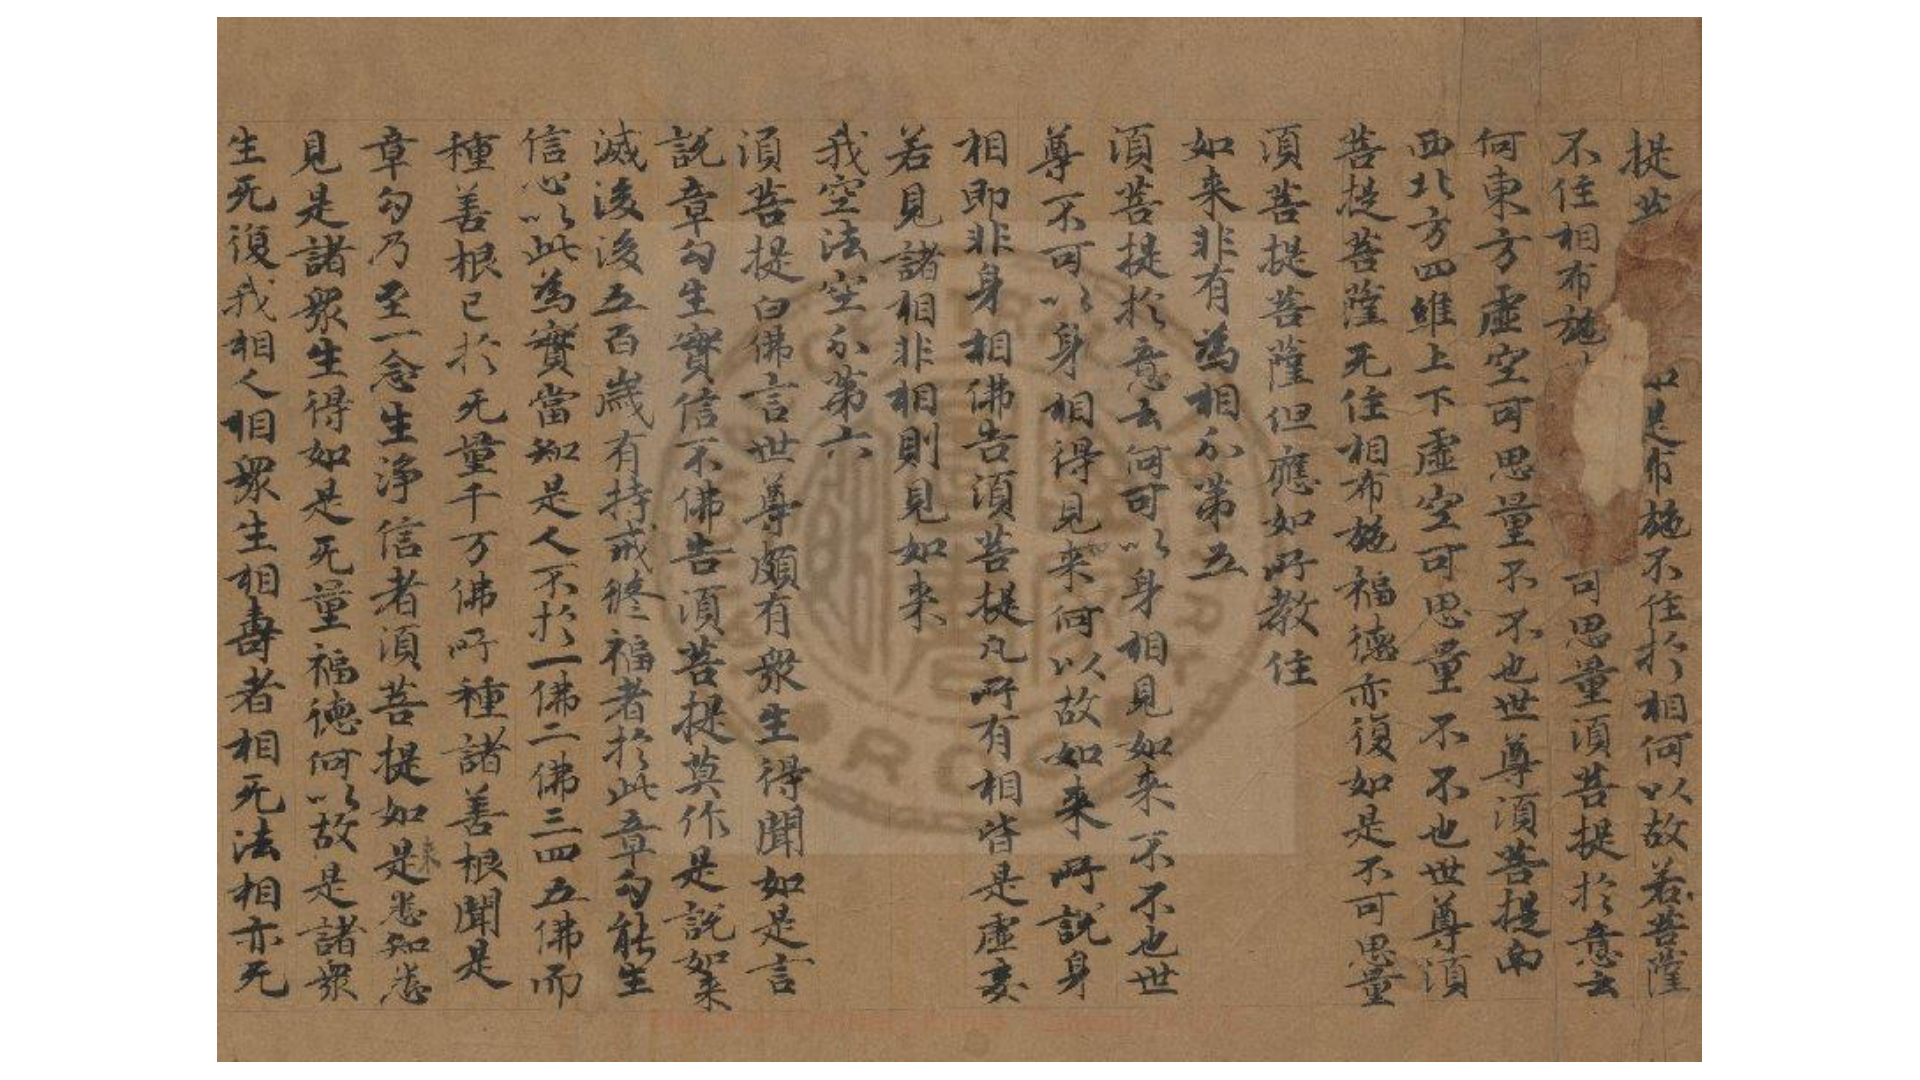 提 如是布施不住扵相何以故若菩薩
不住相布施 可思量須菩提扵意云
何東方虛空可思量不不也世尊須菩提南
西北方四維上下虛空可思量不不也世尊須
菩提菩薩无住相布施福德亦復如是不可思量
須菩提菩薩但應如所教住
如来非有為相分第五
須菩提扵意云何可以身相見如来不不也世
尊不可以身相得見来何以故如来所說身
相即非身相佛告須菩提凡所有相皆是虛妄
若見諸相非相則見如来
我空法空分第六
須菩提白佛言世尊頗有衆生得聞如是言
說章句生實信不佛告須菩提莫作是說如来
滅後後五百歲有持戒修福者扵此章句能生
信心以此為實當知是人不扵一佛二佛三四五佛而
種善根已扵无量千万佛所種諸善根聞是
章句乃至一念生淨信者須菩提如是来悉知悉
見是諸衆生得如是无量福德何以故是諸衆
生无復我相人相衆生相壽者相无法相亦无